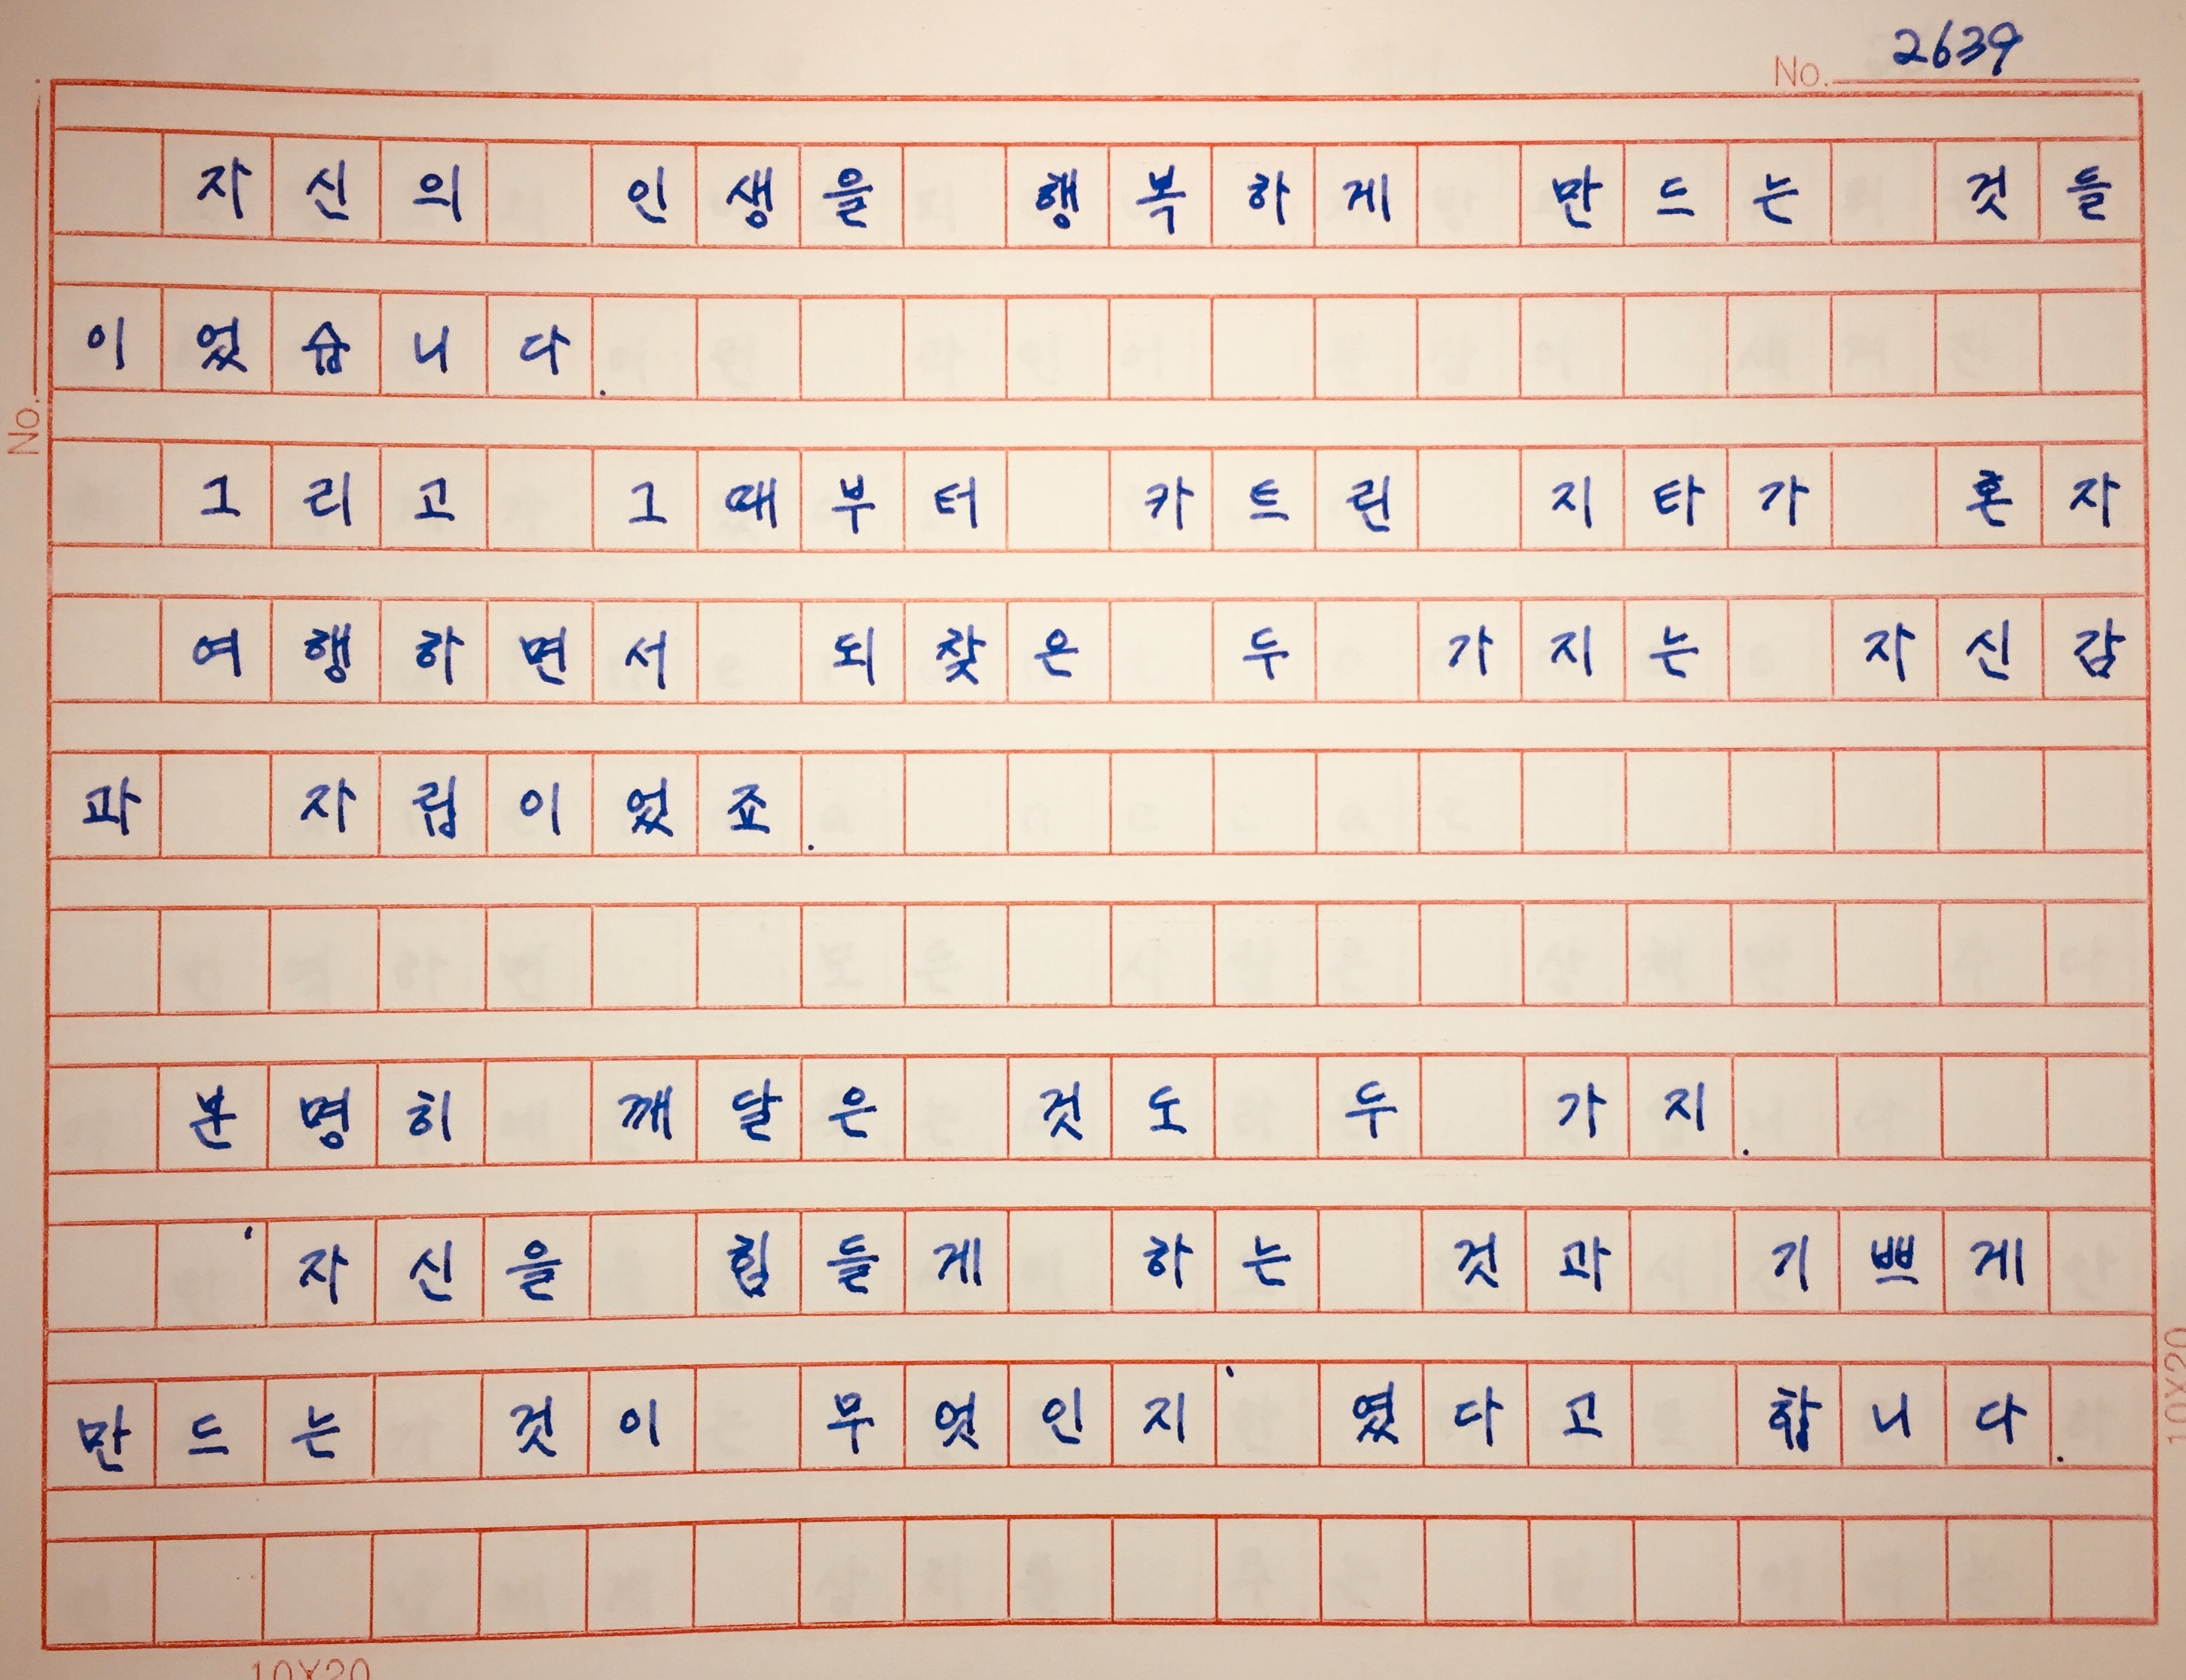 No. 2639
자신의 인생을 행복하게 만드는 것들
이었습니다.
그리고 그때부터 카트린 지타가 혼자
여행하면서 되찾은 두 가지는 자신감
과 자립이었죠.
분명히 깨달은 것도 두 가지.
'자신을 힘들게 하는 것과 기쁘게
만드는 것이 무엇인지' 였다고 합니다.
No.
10X20
10X20